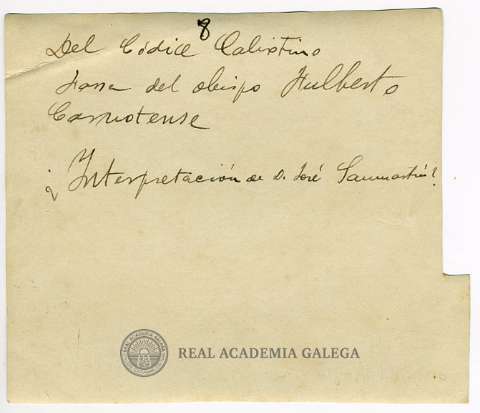 8
Del Códice Calixtino
Farsa del obispo Fulberto
Carnotense
¿Interpretación de D. José Sanmartín?
REAL ACADEMIA GALEGA